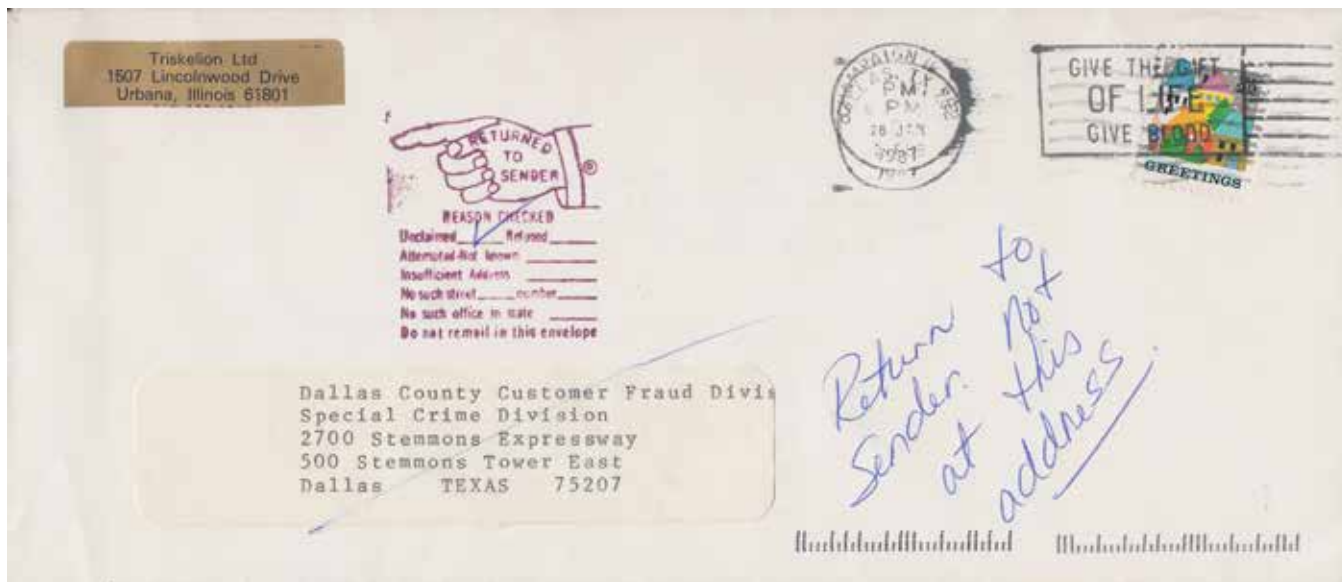 Triskelion Ltd
1507 Lincolnwood Drive
Urbana, Illinois 61801
RETURNED
TO
SENDER
REASON CHECKED
Unclaimed Refused
Attempted-Not known
Insufficient Address
No such street number
No such office in state
Do not remail in this envelope
PM
PM
28 JAN
1987
GIVE THE GIFT
OF LIFE
GIVE BLOOD
GREETINGS
Dallas County Customer Fraud Divis
Special Crime Division
2700 Stemmons Expressway
500 Stemmons Tower East
Dallas TEXAS 75207
Return to
Sender. Not
at this
address.